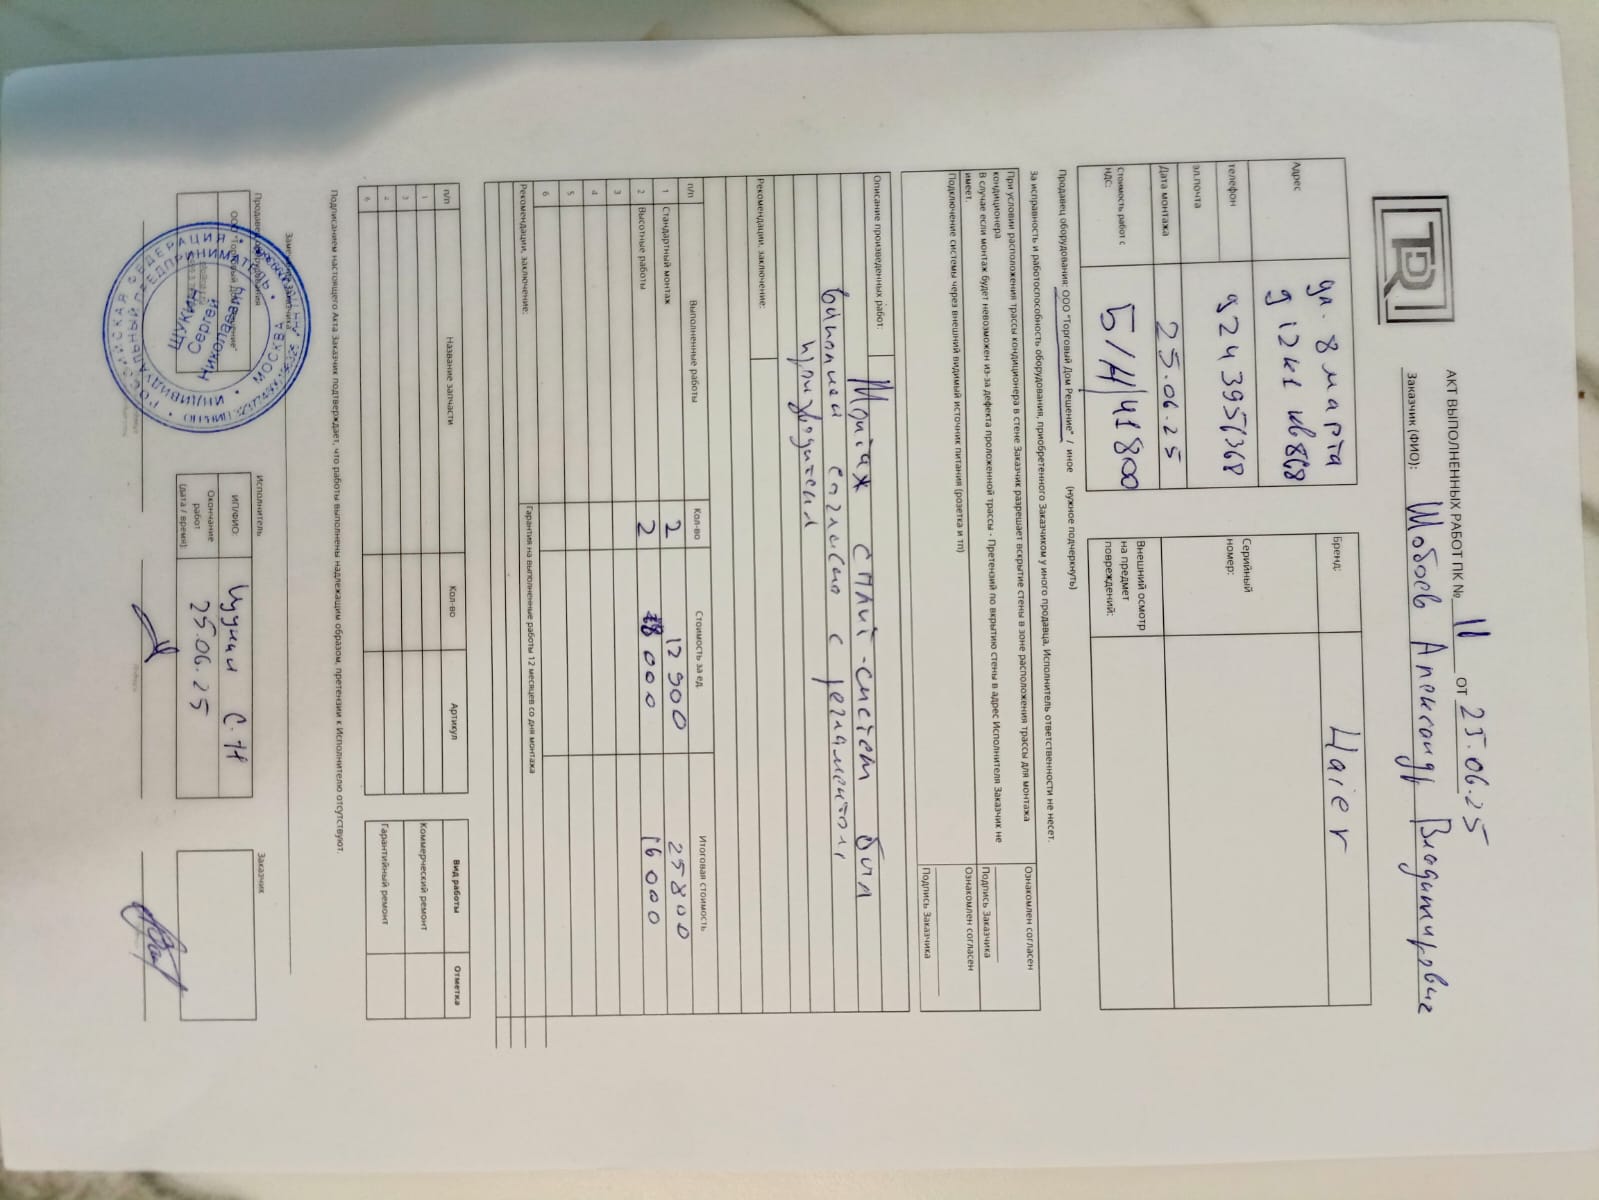 АКТ ВЫПОЛНЕННЫХ РАБОТ ПК № 11 ОТ 25.06.25
Заказчик (ФИО): Шобоев Александр Владимирович
Адрес ул. 8 марта
д 12к1 кв 868
телефон 924 395 1368
эл.почта
Дата монтажа 25.06.25
Стоимость работ с НДС: Б/Н/41800
Бренд: Haier
Серийный номер:
Внешний осмотр на предмет повреждений:
Продавец оборудования: ООО "Торговый Дом Решение" / иное (нужное подчеркнуть)
За исправность и работоспособность оборудования, приобретенного Заказчиком у иного продавца, Исполнитель ответственности не несет.
При условии расположения трассы кондиционера в стене Заказчик разрешает вскрытие стены в зоне расположения трассы для монтажа
кондиционера
Ознакомлен согласен
В случае если монтаж будет невозможен из-за дефекта проложенной трассы - Претензий по вкрытию стены в адрес Исполнителя Заказчик не
имеет.
Подпись Заказчика
Ознакомлен согласен
Подключение системы через внешний видимый источник питания (розетка и тп)
Подпись Заказчика
Описание произведенных работ: Монтаж сплит-систем был
выполнен согласно с регламентом,
производителя
Рекомендации, заключение:
п/п Выполненные работы Кол-во Стоимость за ед. Итоговая стоимость
1 Стандартный монтаж 2 12 900 25800
2 Высотные работы 2 8 000 16 000
3
4
5
6
Рекомендации, заключение: Гарантия на выполненные работы 12 месяцев со дня монтажа
п/п Название запчасти Кол-во Артикул
1
3
4
6
Вид работы Отметка
Коммерческий ремонт
Гарантийный ремонт
Подписанием настоящего Акта Заказчик подтверждает, что работы выполнены надлежащим образом, претензии к Исполнителю отсутствуют.
Продавец оборудования
Исполнитель
ИП/ФИО: Щукин С.Н
Окончание работ (дата / время): 25.06.25
Заказчик
РОССИЙСКАЯ ФЕДЕРАЦИЯ
ИНДИВИДУАЛЬНЫЙ ПРЕДПРИНИМАТЕЛЬ
МОСКВА
ЩУКИН
Сергей
Николаевич